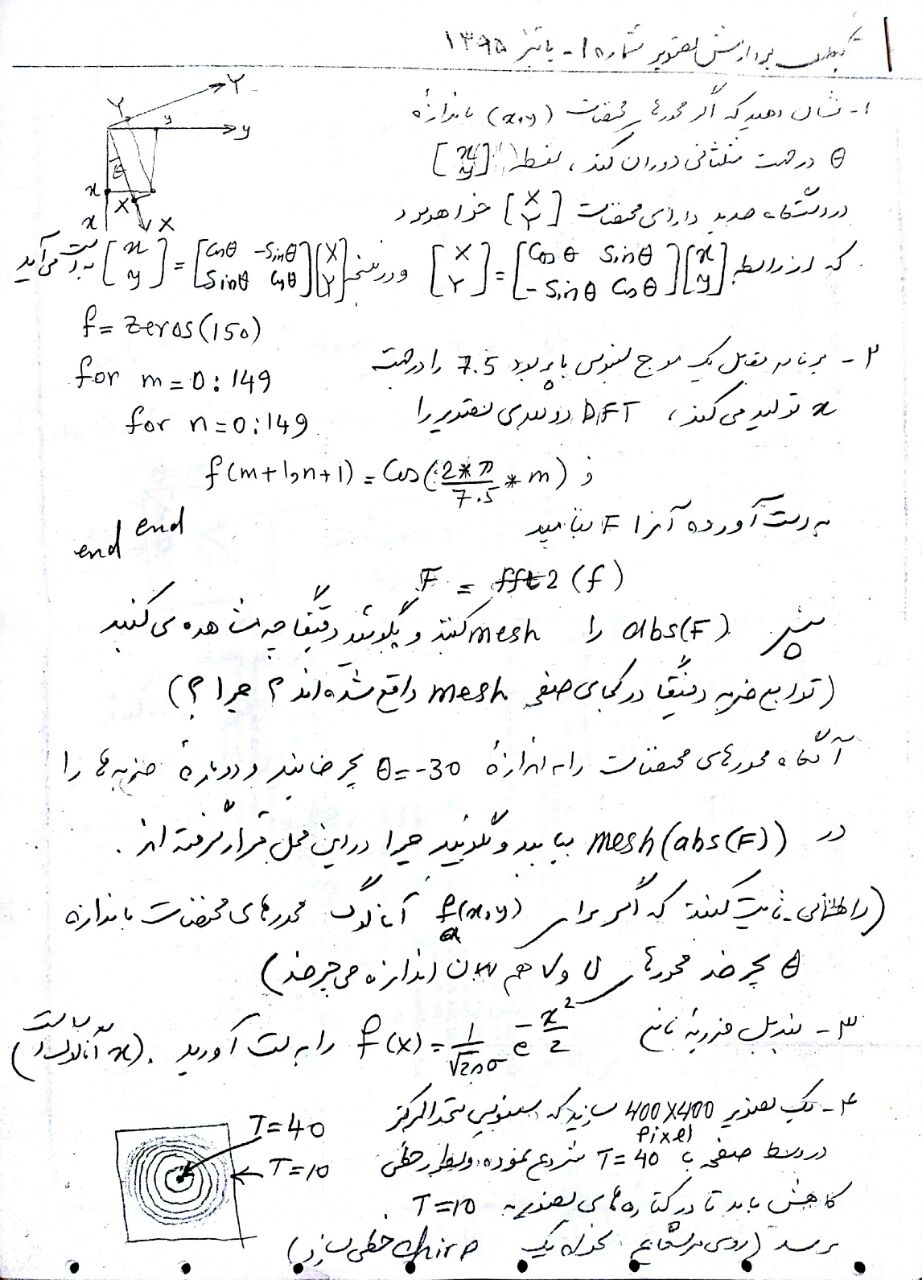 تکلیف پردازش تصویر شماره ۱ - پائیز ۱۳۹۵
۱- نشان دهید که اگر محورهای مختصات (x,y) باندازهٔ
θ در جهت مثلثاتی دوران کند، نقطه [x y]
در دستگاه جدید دارای مختصات [X Y] خواهد بود
که از رابطه [X Y] = [Cosθ Sinθ -Sinθ Cosθ] [x y] و در نتیجه [x y] = [Cosθ -Sinθ Sinθ Cosθ] [X Y] بدست می‌آید
Y
Y
y
y
θ
x
X
x
X
f = zeros(150)
۲- برنامه مقابل یک موج سینوسی با پریود 7.5 را در جهت
for m=0:149
x تولید می‌کند، DFT دو بعدی تصویر را
for n=0:149
f(m+1,n+1) = Cos(2*π/7.5 * m) ;
بدست آورده آنرا F بنامید
end end
F = fft2(f)
سپس abs(F) را mesh کنید و بگوئید دقیقا چه مشاهده می‌کنید
(توابع ضربه دقیقا در کجای صفحه mesh واقع شده‌اند؟ چرا؟)
آنگاه محورهای مختصات را به اندازهٔ θ=-30 بچرخانید و دوبارهٔ ضربه‌ها را
در mesh(abs(F)) بیابید و بگوئید چرا در این محل قرار گرفته‌اند.
(راهنمائی - ثابت کنید که اگر برای fa(x,y) آنالوگ محورهای مختصات باندازه
θ بچرخد محورهای U و V هم همان اندازه می‌چرخند)
۳- تبدیل فوریهٔ تابع f(x) = 1/√2πσ e^-x²/2 را بدست آورید. (x آنالوگ است)
۴- یک تصویر 400X400 pixel بسازید که سینوسی متحدالمرکز
T=40
در وسط صفحه با T=40 شروع نموده و بطور خطی
T=10
کاهش یابد تا در کناره‌های تصویر به T=10
برسد (روی هر شعاع بمنزله یک chirp خطی بسازد)